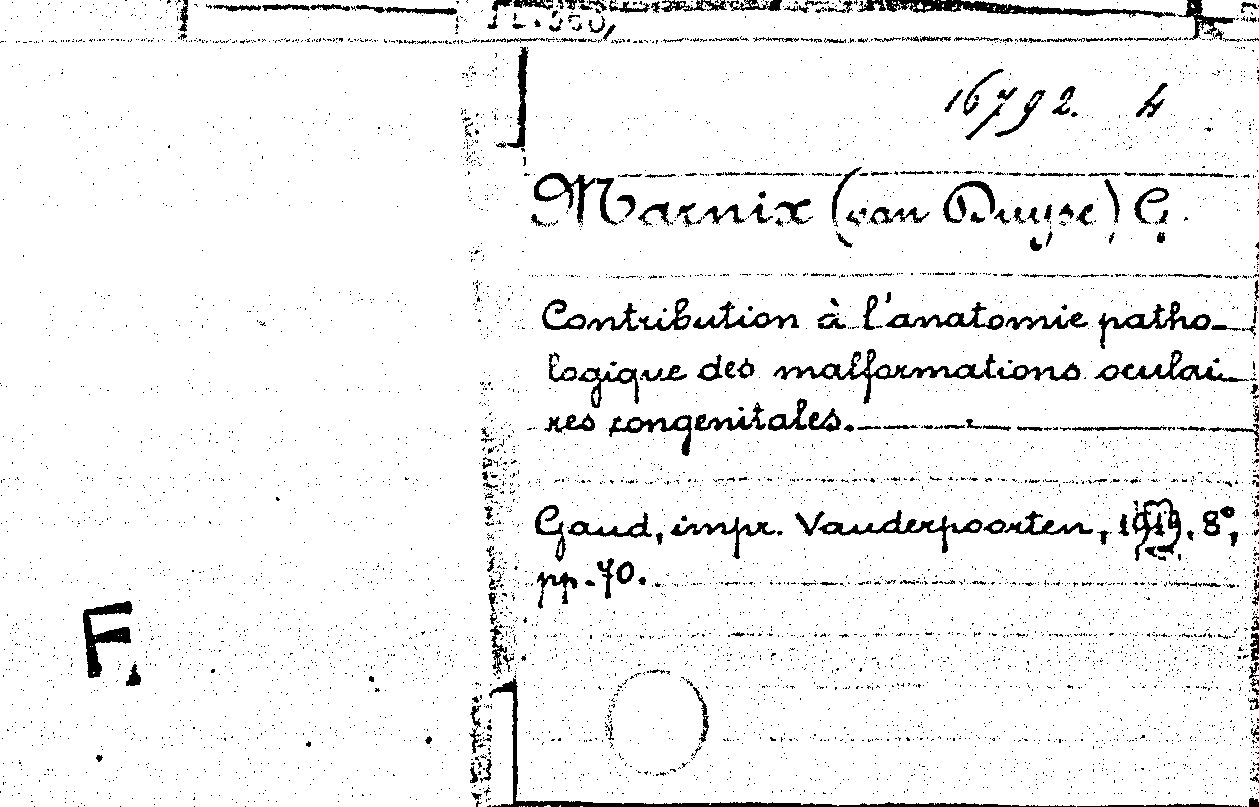 16792. 4
Marnix (van Duyse) G.
Contribution à l'anatomie patho-
logique des malformations oculai-
res congenitales.
Gand, impr. Vanderpoorten, 1919. 8°,
pp. 70.
F.